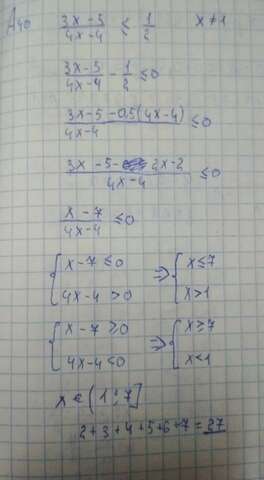 A40 (3x-5)/(4x-4) ≤ 1/2 x≠1
(3x-5)/(4x-4) - 1/2 ≤0
(3x-5-0,5(4x-4))/(4x-4) ≤0
(3x-5- 2x-2)/(4x-4) ≤0
(x-7)/(4x-4) ≤0
{ x-7≤0 => { x≤7
4x-4>0 x>1
{ x-7≥0 => { x≥7
4x-4<0 x<1
x ∈ (1;7]
2+3+4+5+6+7=27